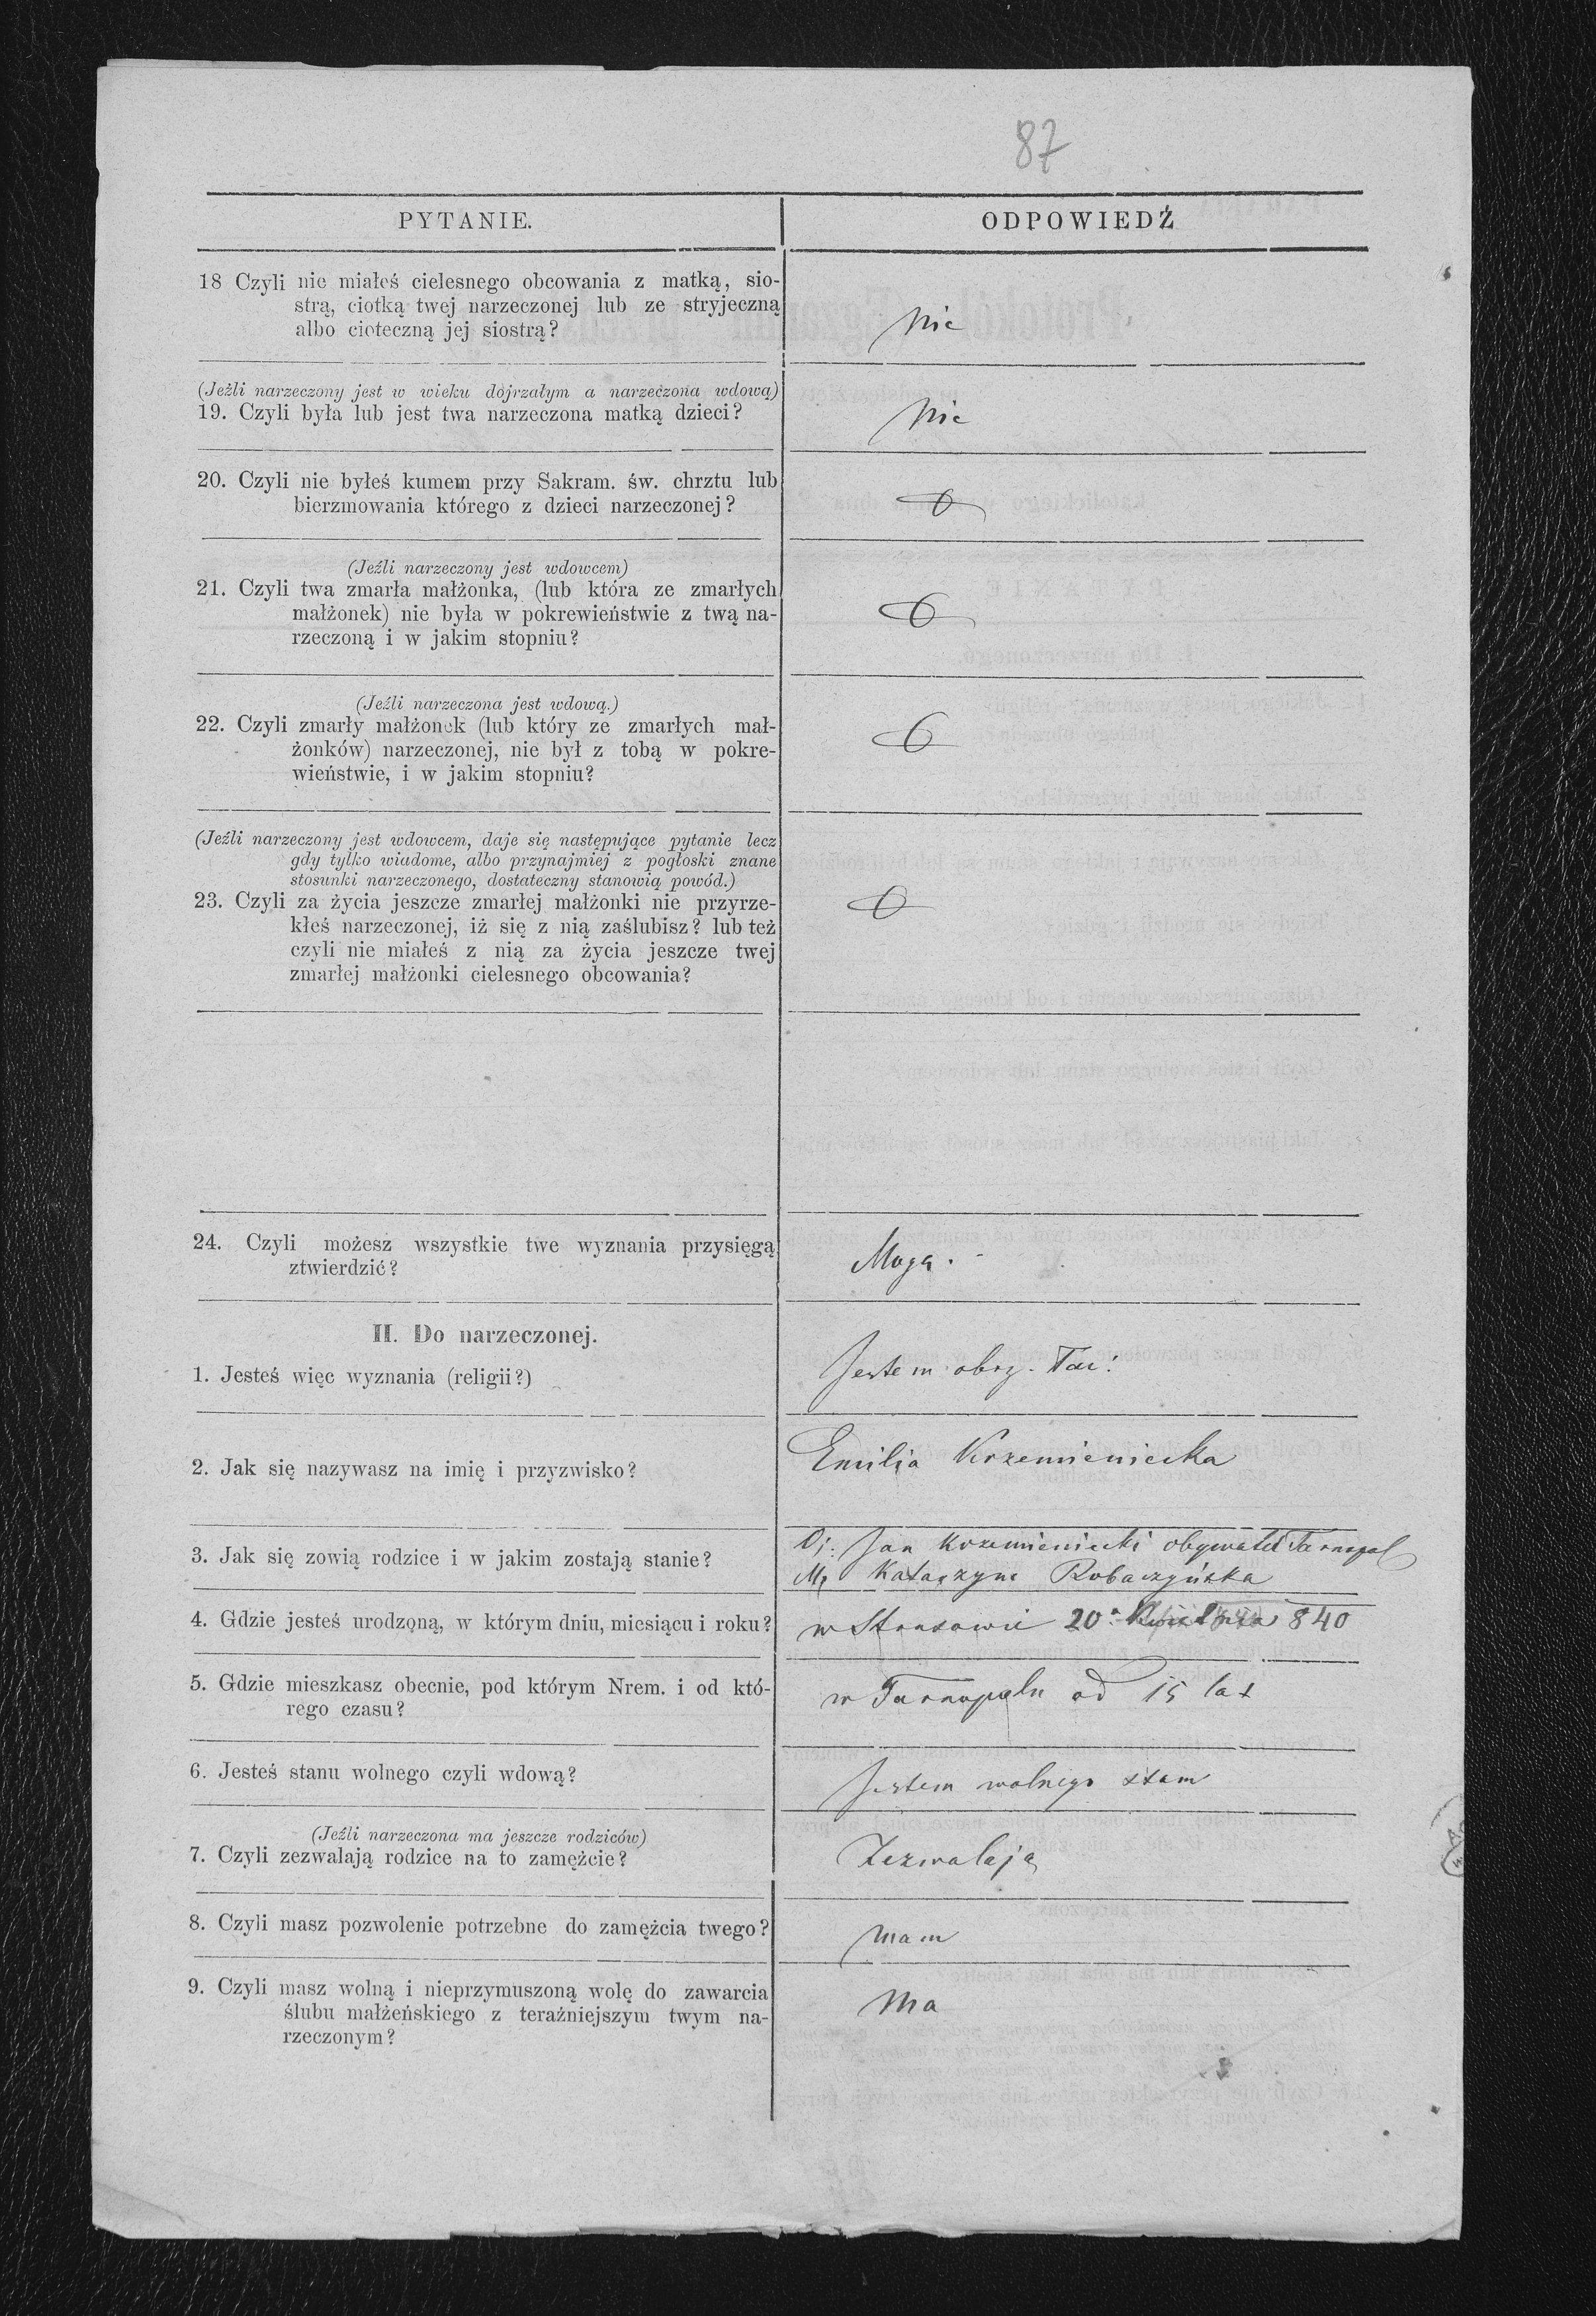 87
PYTANIE.
ODPOWIEDŹ
18 Czyli nie miałeś cielesnego obcowania z matką, sio-
strą, ciotką twej narzeczonej lub ze stryjeczną
albo cioteczną jej siostrą?
Nie
(Jeżli narzeczony jest w wieku dojrzałym a narzeczona wdową)
19. Czyli była lub jest twa narzeczona matką dzieci?
Nie
20. Czyli nie byłeś kumem przy Sakram. św. chrztu lub
bierzmowania którego z dzieci narzeczonej?
(Jeźli narzeczony jest wdowcem)
21. Czyli twa zmarła małżonka, (lub która ze zmarłych
małżonek) nie była w pokrewieństwie z twą na-
rzeczoną i w jakim stopniu?
(Jeźli narzeczona jest wdową.)
22. Czyli zmarły małżonek (lub który ze zmarłych mał-
żonków) narzeczonej, nie był z tobą w pokre-
wieństwie, i w jakim stopniu?
(Jeźli narzeczony jest wdowcem, daje się następujące pytanie lecz
gdy tylko wiadome, albo przynajmiej z pogłoski znane
stosunki narzeczonego, dostateczny stanowią powód.)
23. Czyli za życia jeszcze zmarłej małżonki nie przyrze-
kłeś narzeczonej, iż się z nią zaślubisz? lub też
czyli nie miałeś z nią za życia jeszcze twej
zmarłej małżonki cielesnego obcowania?
24. Czyli możesz wszystkie twe wyznania przysięgą
ztwierdzić?
Mogę.
II. Do narzeczonej.
1. Jesteś więc wyznania (religii?)
Jestem obrz. łać:
2. Jak się nazywasz na imię i przyzwisko?
Emilia Krzemieniecka
3. Jak się zowią rodzice i w jakim zostają stanie?
Oj: Jan Krzemieniecki obywatel Tarnopol
Ma Katarzyna Robaczyńska
4. Gdzie jesteś urodzoną, w którym dniu, miesiącu i roku?
w Strusowie 20. Kwietnia 840
5. Gdzie mieszkasz obecnie, pod którym Nrem. i od któ-
rego czasu?
w Tarnopolu od 15 lat
6. Jesteś stanu wolnego czyli wdową?
Jestem wolnego stanu
(Jeźli narzeczona ma jeszcze rodziców)
7. Czyli zezwalają rodzice na to zamęźcie?
Zezwalają
8. Czyli masz pozwolenie potrzebne do zamęźcia twego?
mam
9. Czyli masz wolną i nieprzymuszoną wolę do zawarcia
ślubu małżeńskiego z teraźniejszym twym na-
rzeczonym?
Ma